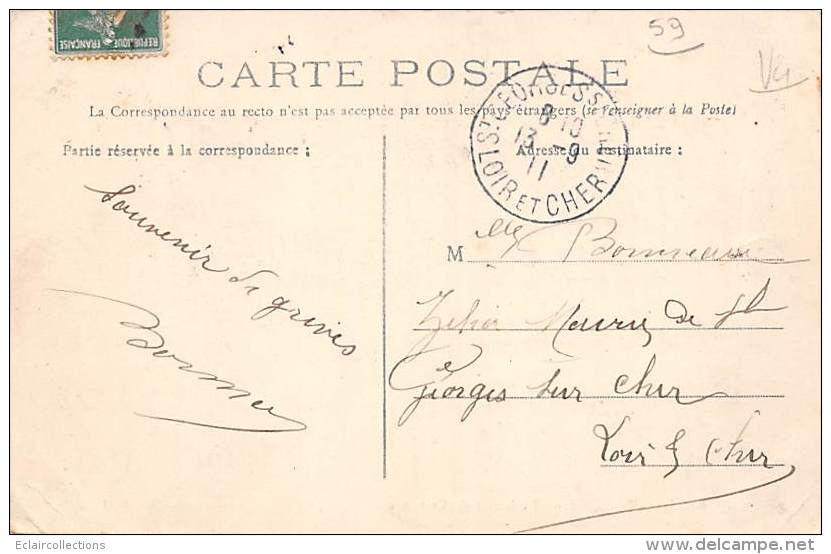 59
REPUBLIQUE FRANÇAISE
CARTE POSTALE
La Correspondance au recto n'est pas acceptée par tous les pays étrangers (se renseigner à la Poste)
ST GEORGES S
8 10
13 - 9
11
LOIR ET CHER
Partie réservée à la correspondance ;
Adresse du destinataire :
Souvenir de
M lle Bonneau
de St
Georges sur Cher
Loir & Cher
Eclaircollections
www.delcampe.net